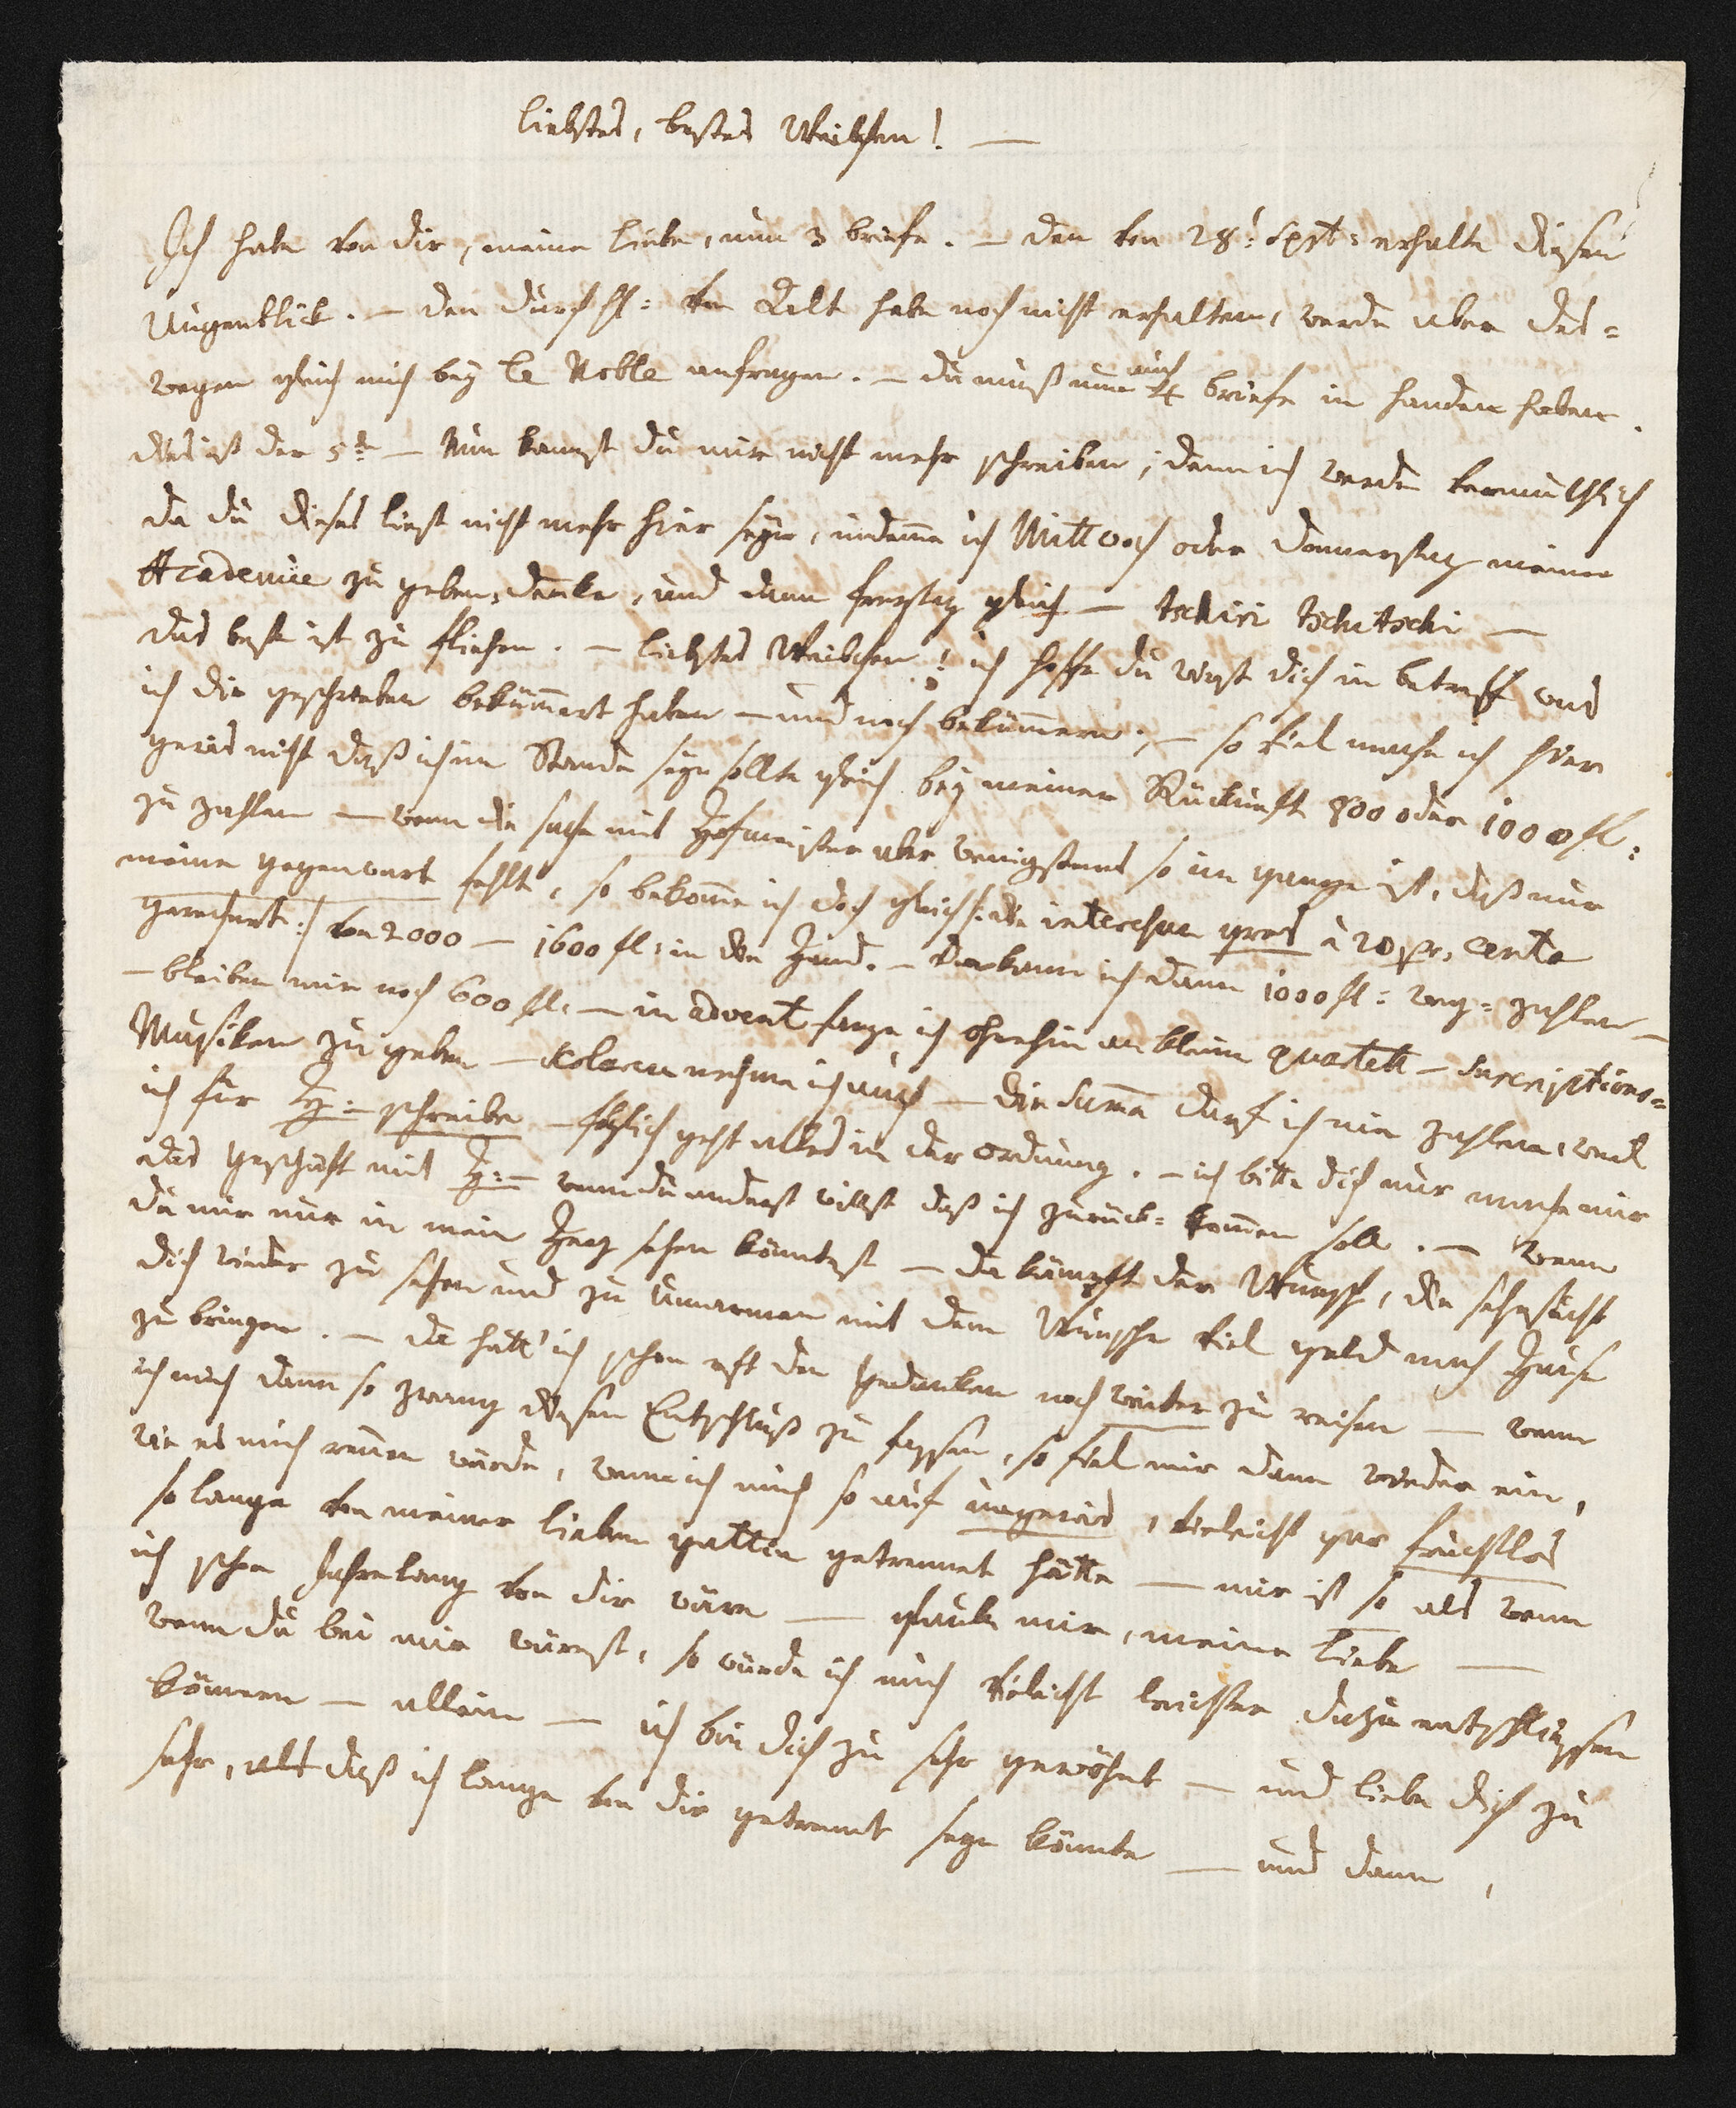 liebstes, bestes Weibchen! —
Ich habe von dir, meine liebe, nun 3 briefe. — den von 28:t Sept: erhalte diesen
Augenblick. — den durch H: von Alt habe noch nicht erhalten, werde aber des=
wegen gleich mich bey le Noble anfragen. — du must nun auch 4 briefe in handen haben.
dies ist der 5te — Nun kannst du mir nicht mehr schreiben; denn ich werde vermuthlich
da du dieses liest nicht mehr hier seyn, indemme ich Mittwoch oder Donnerstag meine
Academie zu geben denke, und dann freytag gleich — tschiri tschitschi —
das beste ist zu fliehen. — liebstes Weibchen! ich hoffe du wirst dich in betreff was
ich dir geschrieben bekümmert haben — und noch bekümmern; — so viel mache ich hier
gewis nicht daß ich im Stande seyn sollte gleich bey meiner Rückkunft 800 oder 1000 fl:
zu zahlen — wenn die sache mit Hofmeister aber wenigstens so im gange ist, daß nur
meine gegenwart fehlt, so bekomme ich doch gleich |: die interessen gros à 20 pr: cento
gerechnet :| von 2000 — 1600 fl: in die Hand. — da kann ich dann 1000 fl: weg=zahlen —
— bleiben mir noch 600 fl: — in advent fange ich ohnehin an kleine quartett – Suscriptions=
Musiken zu geben — Scolaren nehme ich auch — die Summa darf ich nie zahlen, weil
ich für H:— schreibe — folglich geht alles in der ordnung. — ich bitte dich nur mache mir
das Geschäft mit H:— wenn du anderst willst daß ich zurück=kommen soll. — wenn
du mir nur in mein Herz sehen könntest — da kämpft der Wunsch, die sehnsucht
dich wieder zu sehen und zu umarmen mit dem Wunsche viel geld nach Hause
zu bringen. — da hatt' ich schon oft den Gedanken noch weiter zu reisen — wenn
ich mich dann so zwang diesen Entschluß zu fassen, so fiel mir dann wieder ein,
wie es mich reuen würde, wenn ich mich so auf ungewis, vieleicht gar fruchtlos
so lange von meiner lieben gattin getrennet hätte — mir ist so als wenn
ich schon Jahrelang von dir wäre — glaube mir, meine liebe —
wenn du bei mir wärest, so würde ich mich vieleicht leichter dazu entschlüssen
können — allein — ich bin dich zu sehr gewöhnt — und liebe dich zu
sehr, als daß ich lange von dir getrennt seyn könnte — und dann,